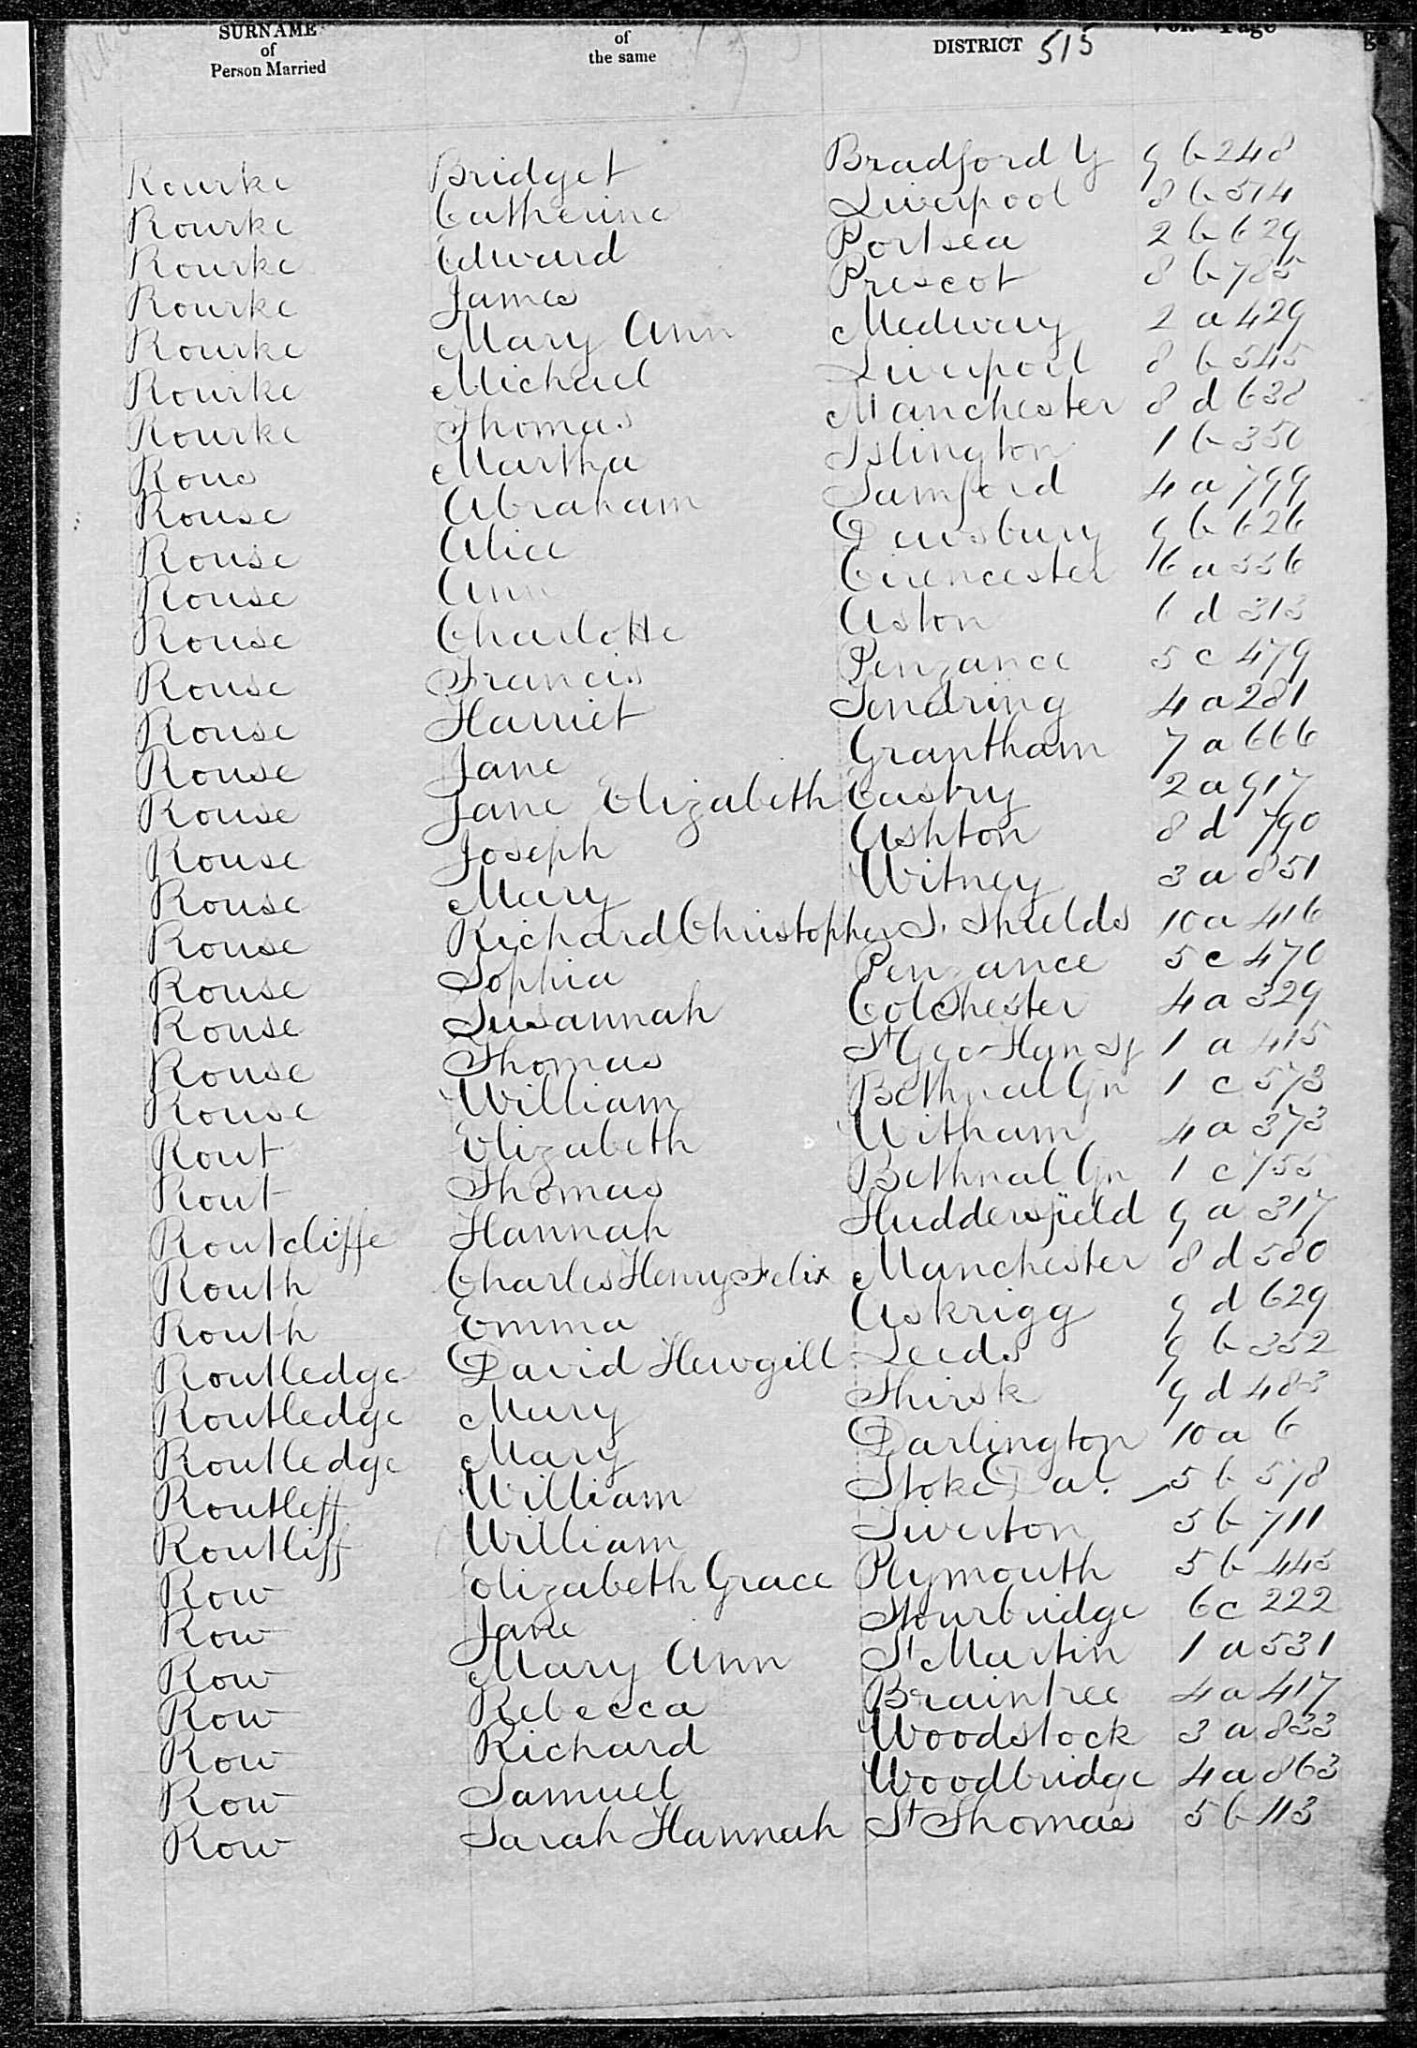 SURNAME of Person Married
of the same
DISTRICT 515
Vol. Page
Rourke Bridget Bradford Y 9 b 248
Rourke Catherine Liverpool 8 b 514
Rourke Edward Portsea 2 b 629
Rourke James Prescot 8 b 785
Rourke Mary Ann Medway 2 a 429
Rourke Michael Liverpool 8 b 545
Rourke Thomas Manchester 8 d 638
Rous Martha Islington 1 b 350
Rouse Abraham Samford 4 a 799
Rouse Alice Dewsbury 9 b 626
Rouse Ann Cirencester 6 a 336
Rouse Charlotte Aston 6 d 313
Rouse Francis Penzance 5 c 479
Rouse Harriet Tendring 4 a 281
Rouse Jane Grantham 7 a 666
Rouse Jane Elizabeth Eastry 2 a 917
Rouse Joseph Ashton 8 d 790
Rouse Mary Witney 3 a 851
Rouse Richard Christopher S. Shields 10 a 416
Rouse Sophia Penzance 5 c 470
Rouse Susannah Colchester 4 a 329
Rouse Thomas St Geo Han Sq 1 a 415
Rouse William Bethnal Gn 1 c 573
Rout Elizabeth Witham 4 a 373
Rout Thomas Bethnal Gn 1 c 755
Routcliffe Hannah Huddersfield 9 a 317
Routh Charles Henry Felix Manchester 8 d 580
Routh Emma Askrigg 9 d 629
Routledge David Hewgill Leeds 9 b 352
Routledge Mary Thirsk 9 d 483
Routledge Mary Darlington 10 a 6
Routleff William Stoke Da. 5 b 578
Routliff William Tiverton 5 b 711
Row Elizabeth Grace Plymouth 5 b 445
Row Jane Stourbridge 6 c 222
Row Mary Ann St Martin 1 a 531
Row Rebecca Braintree 4 a 417
Row Richard Woodstock 3 a 833
Row Samuel Woodbridge 4 a 863
Row Sarah Hannah St Thomas 5 b 113